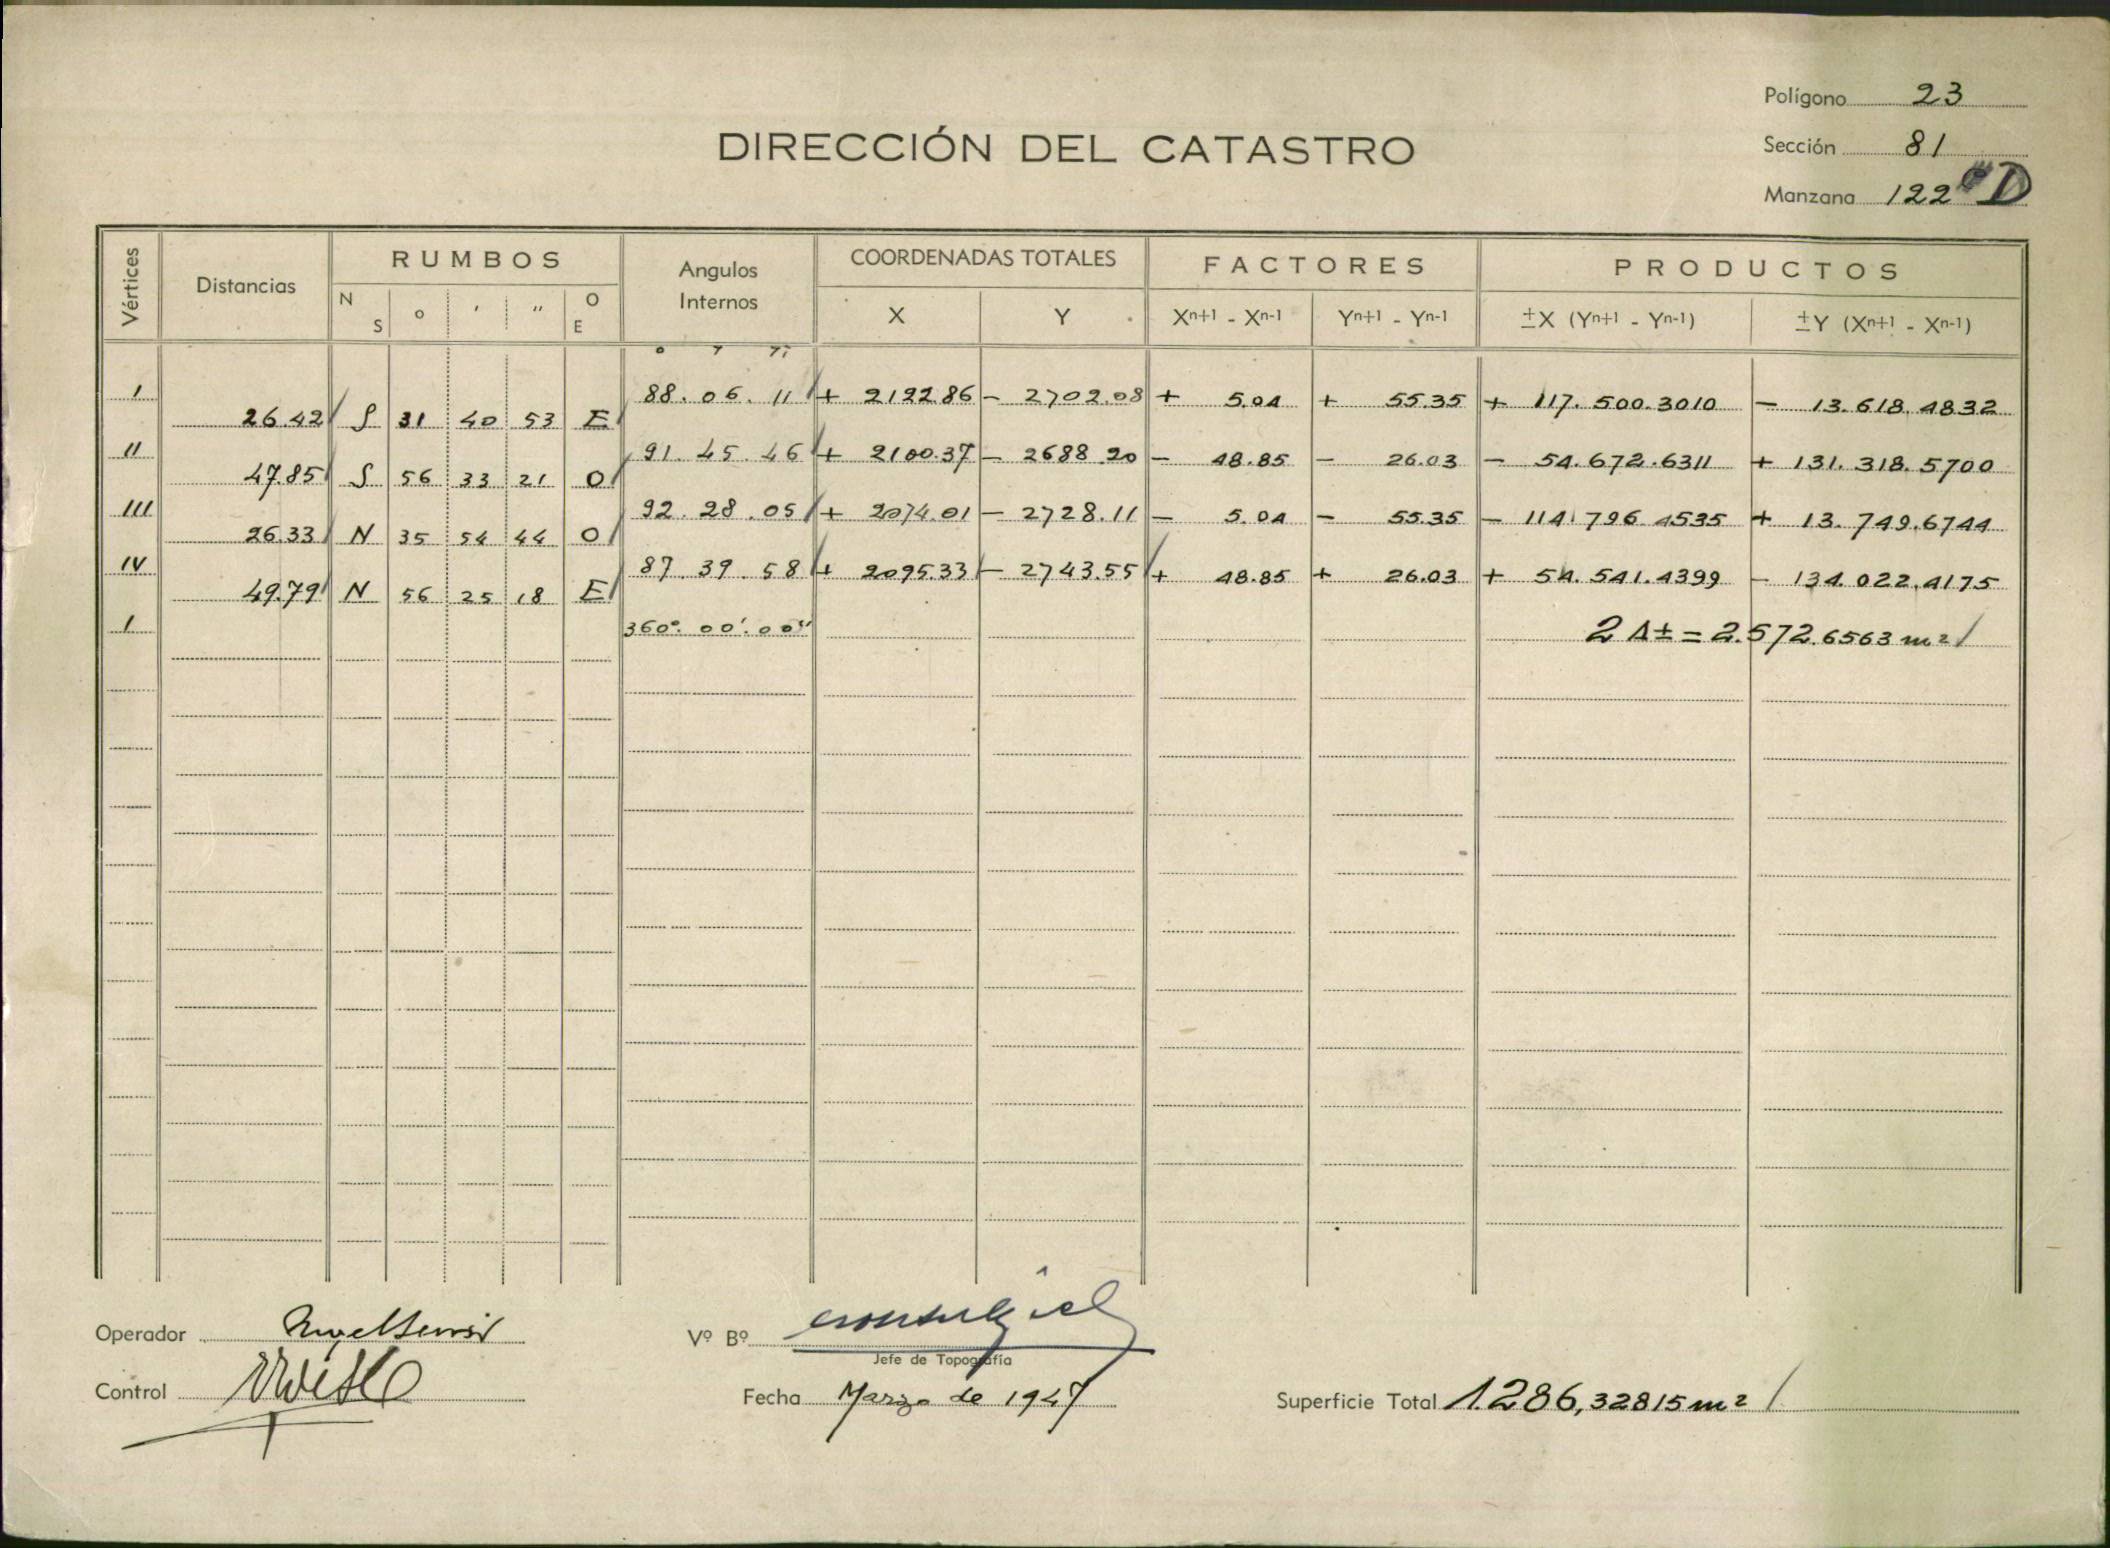 Polígono 23
DIRECCIÓN DEL CATASTRO
Sección 81
Manzana 122 D
Vértices Distancias RUMBOS Angulos Internos COORDENADAS TOTALES FACTORES PRODUCTOS
N S o ' '' O E X Y Xn+1 - Xn-1 Yn+1 - Yn-1 ±X (Yn+1 - Yn-1) ±Y (Xn+1 - Xn-1)
o ' ''
I 88. 06. 11 + 2122.86 - 2702.08 + 5.04 + 55.35 + 117.500.3010 - 13.618.4832
26.42 S 31 40 53 E
II 91. 45. 46 + 2100.37 - 2688.20 - 48.85 - 26.03 - 54.672.6311 + 131.318.5700
47.85 S 56 33 21 O
III 92. 28. 05 + 2074.01 - 2728.11 - 5.04 - 55.35 - 114.796.4535 + 13.749.6744
26.33 N 35 54 44 O
IV 87. 39. 58 + 2095.33 - 2743.55 + 48.85 + 26.03 + 54.541.4399 - 134.022.4175
49.79 N 56 25 18 E
I 360°. 00'. 00'' 2 A ± = 2.572.6563 m²
Operador
Vº Bº
Jefe de Topografía
Control
Fecha Marzo de 1947
Superficie Total 1.286,32815 m²